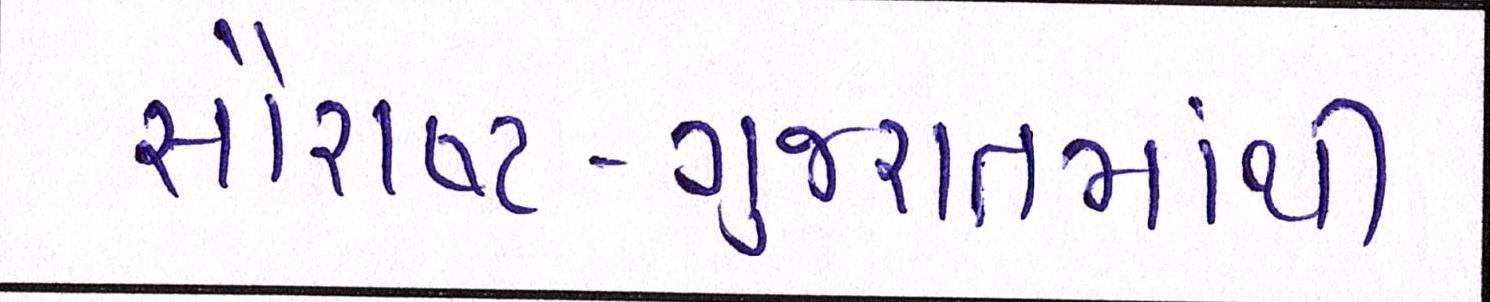 સૌરાષ્ટ-ગુજરાતમાંથી